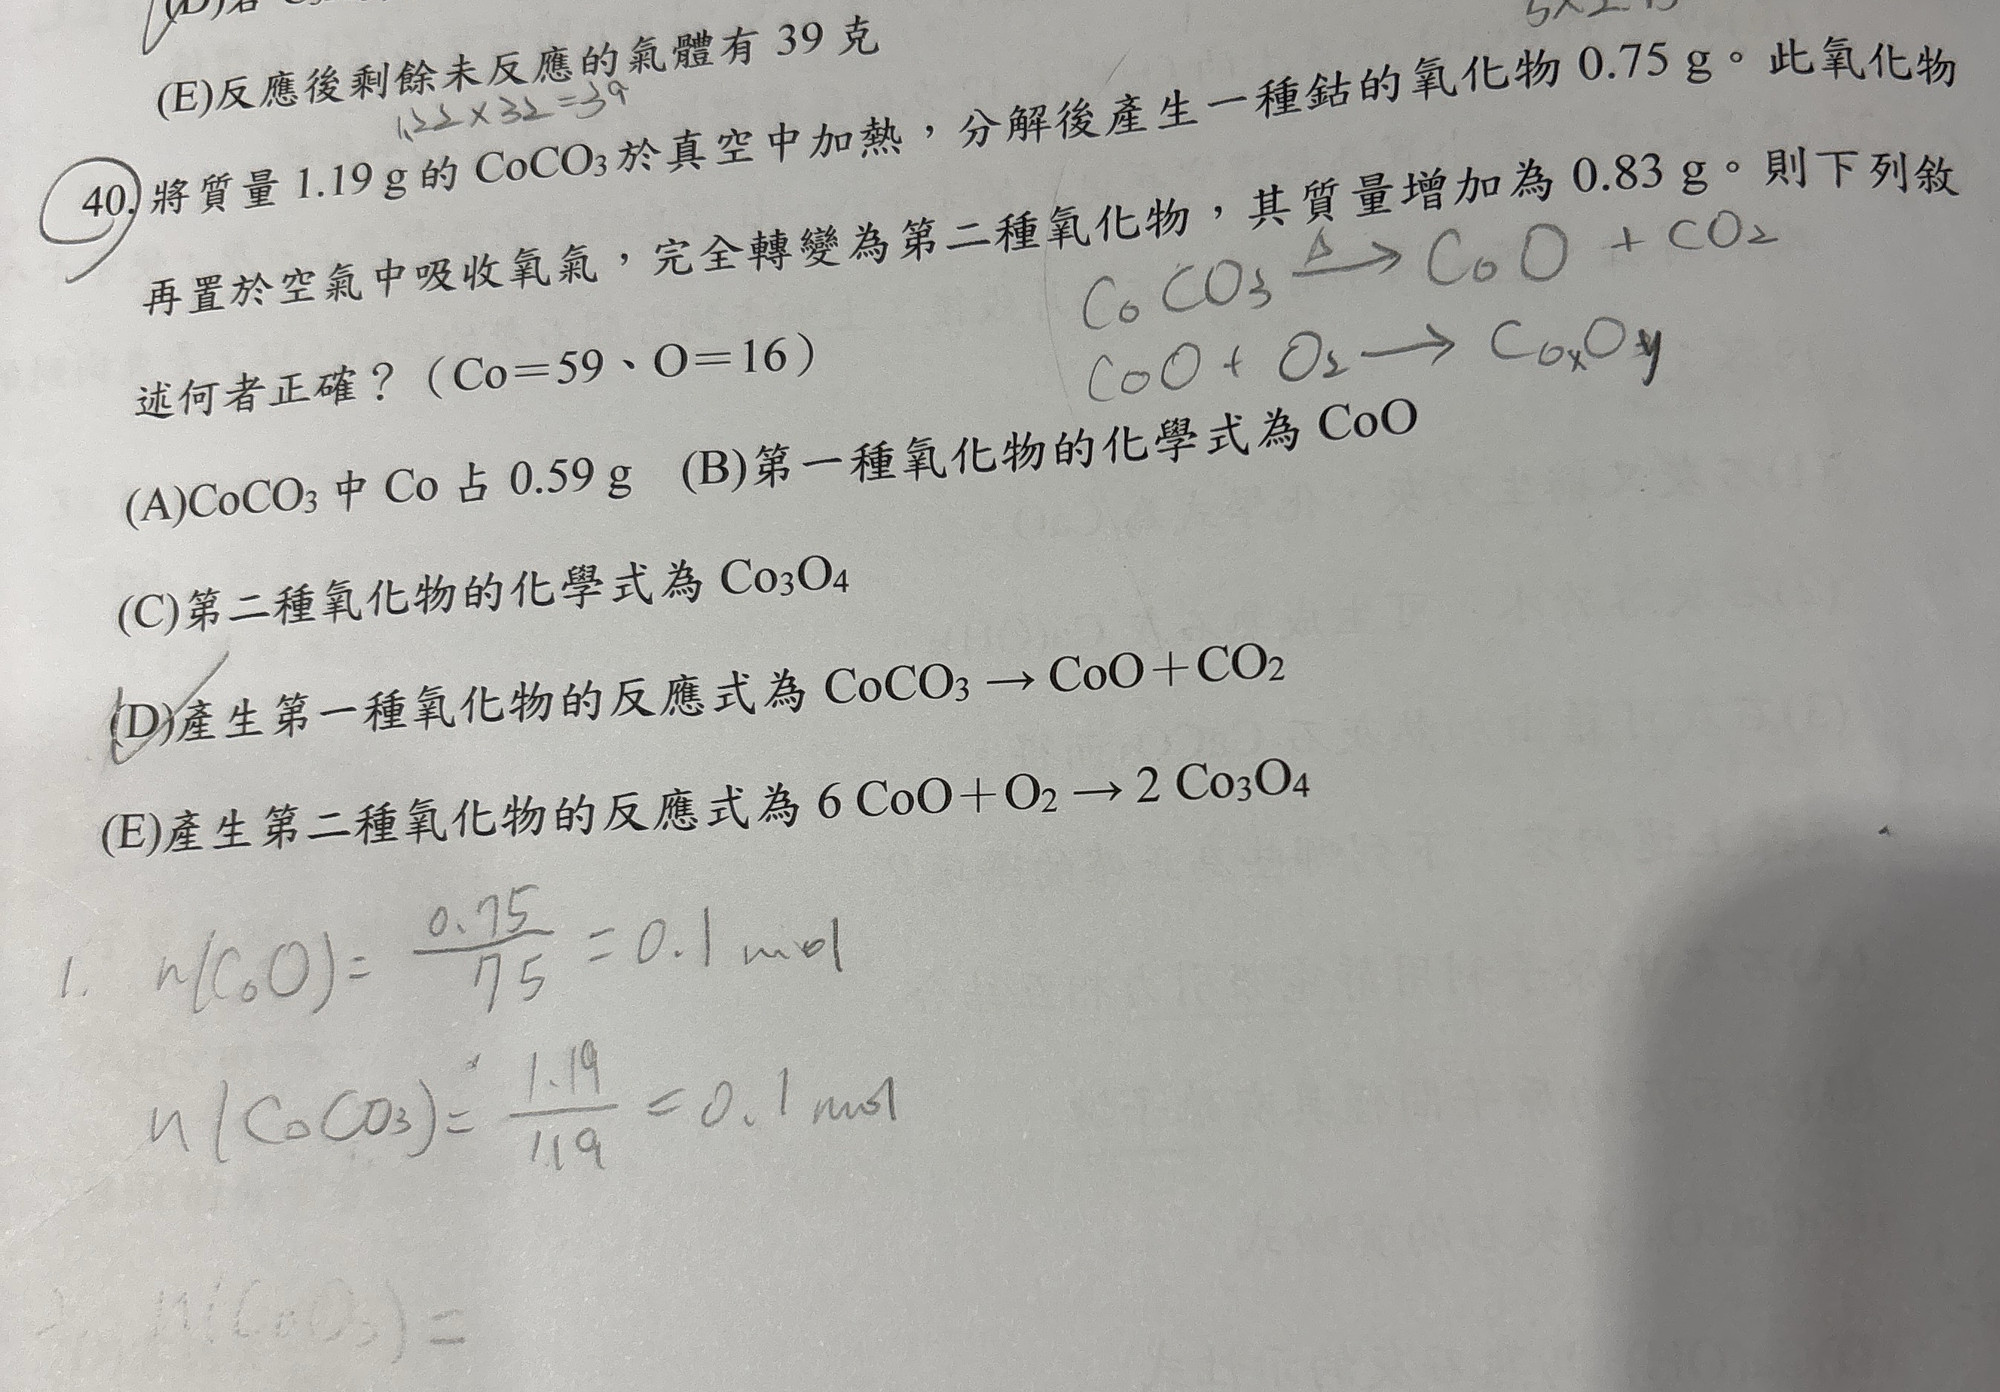 (E)反應後剩餘未反應的氣體有 39 克
1.22×32=39
40.將質量 1.19 g 的 CoCO3 於真空中加熱，分解後產生一種鈷的氧化物 0.75 g。此氧化物
再置於空氣中吸收氧氣，完全轉變為第二種氧化物，其質量增加為 0.83 g。則下列敘
CoCO3 △→ CoO + CO2
述何者正確？（Co=59、O=16）
CoO + O2 → CoxOy
(A)CoCO3 中 Co 占 0.59 g (B)第一種氧化物的化學式為 CoO
(C)第二種氧化物的化學式為 Co3O4
(D)產生第一種氧化物的反應式為 CoCO3 → CoO+CO2
(E)產生第二種氧化物的反應式為 6 CoO+O2 → 2 Co3O4
1. n(CoO)= 0.75/75 = 0.1 mol
n(CoCO3)= 1.19/119 = 0.1 mol